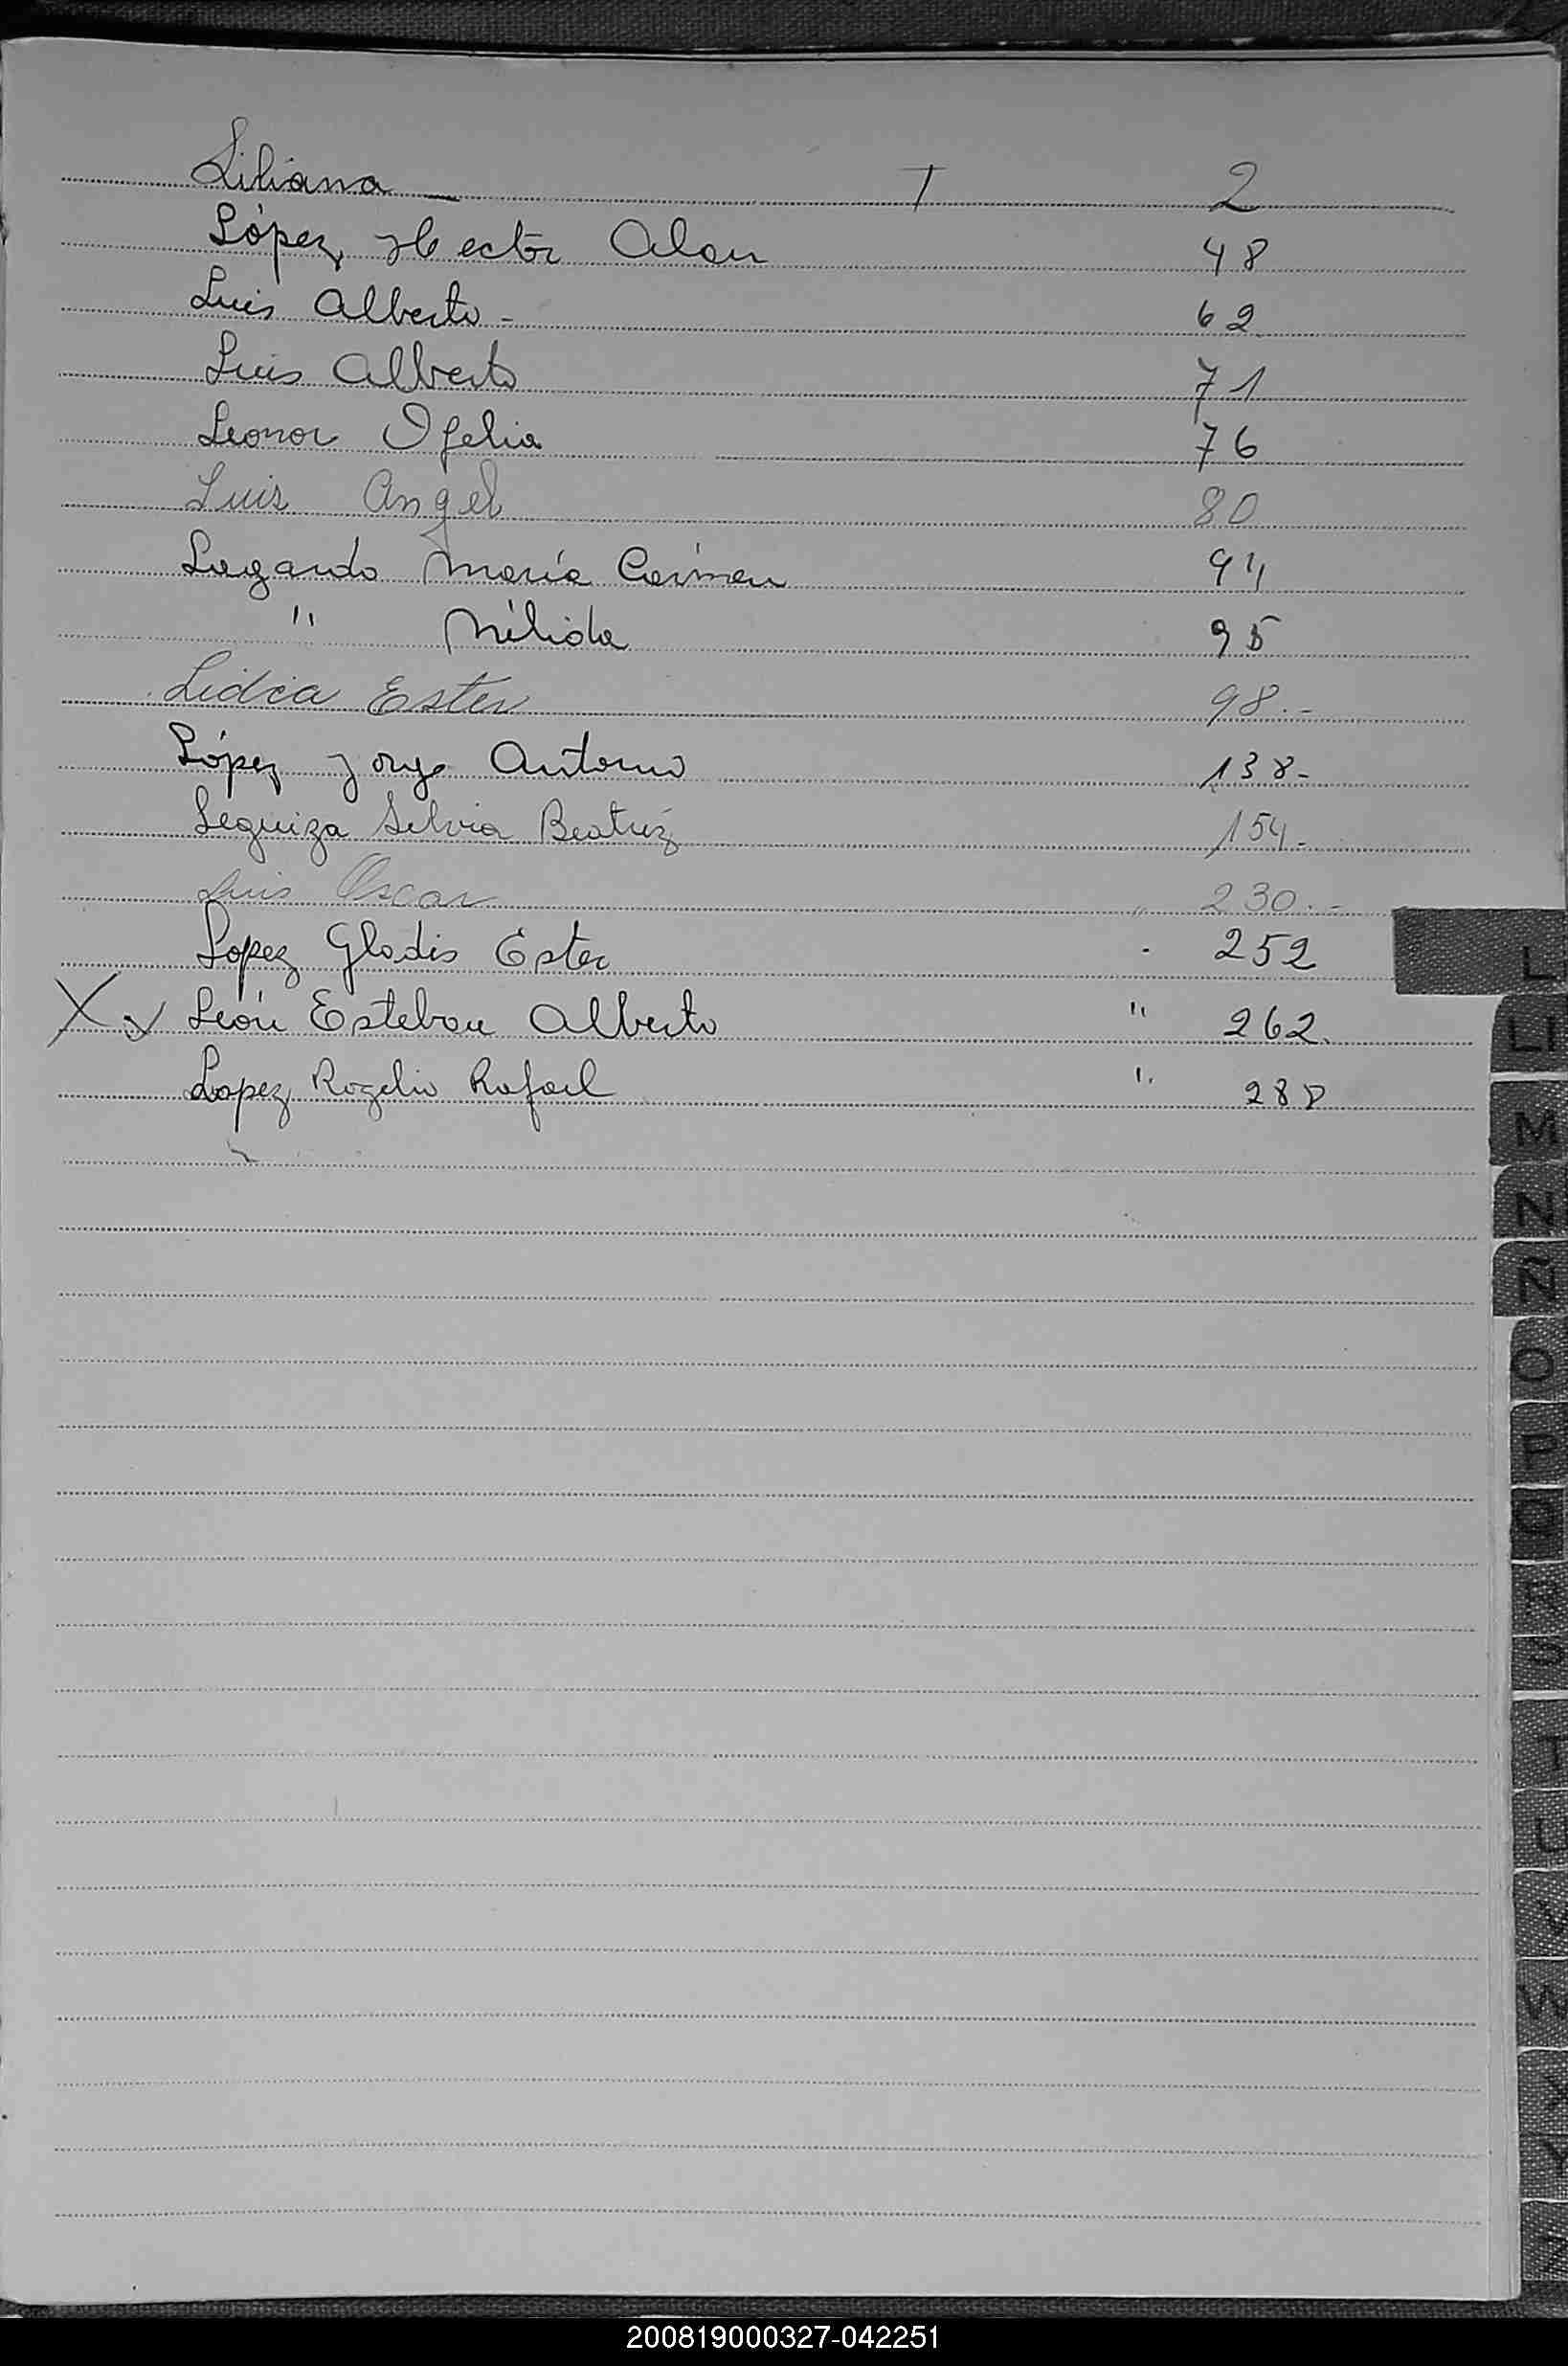 Liliana — T 2
López Hector Alan 48
Luis Alberto - 62
Luis Alberto 71
Leonor Ofelia 76
Luis Angel 80
Legardo María Carmen 94
" Nélida 95
Lidia Ester 98.-
López Jorge Antonio 138-
Leguiza Silvia Beatriz 154-
Luis Oscar " 230.-
Lopez Gladis Ester - 252
X León Esteban Alberto " 262.
Lopez Rogelio Rafael " 288
L
Ll
M
N
Ñ
O
P
Q
R
S
T
U
V
W
X
Y
Z
200819000327-042251